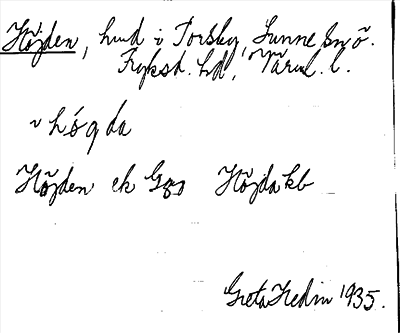 Höjden, hmd i Torsby, Sunne sn ö.
Fryksd. hd, Värml. l.
~ hǿgda
Höjden ek Gzs Höjda kb
Greta Hedin 1935.